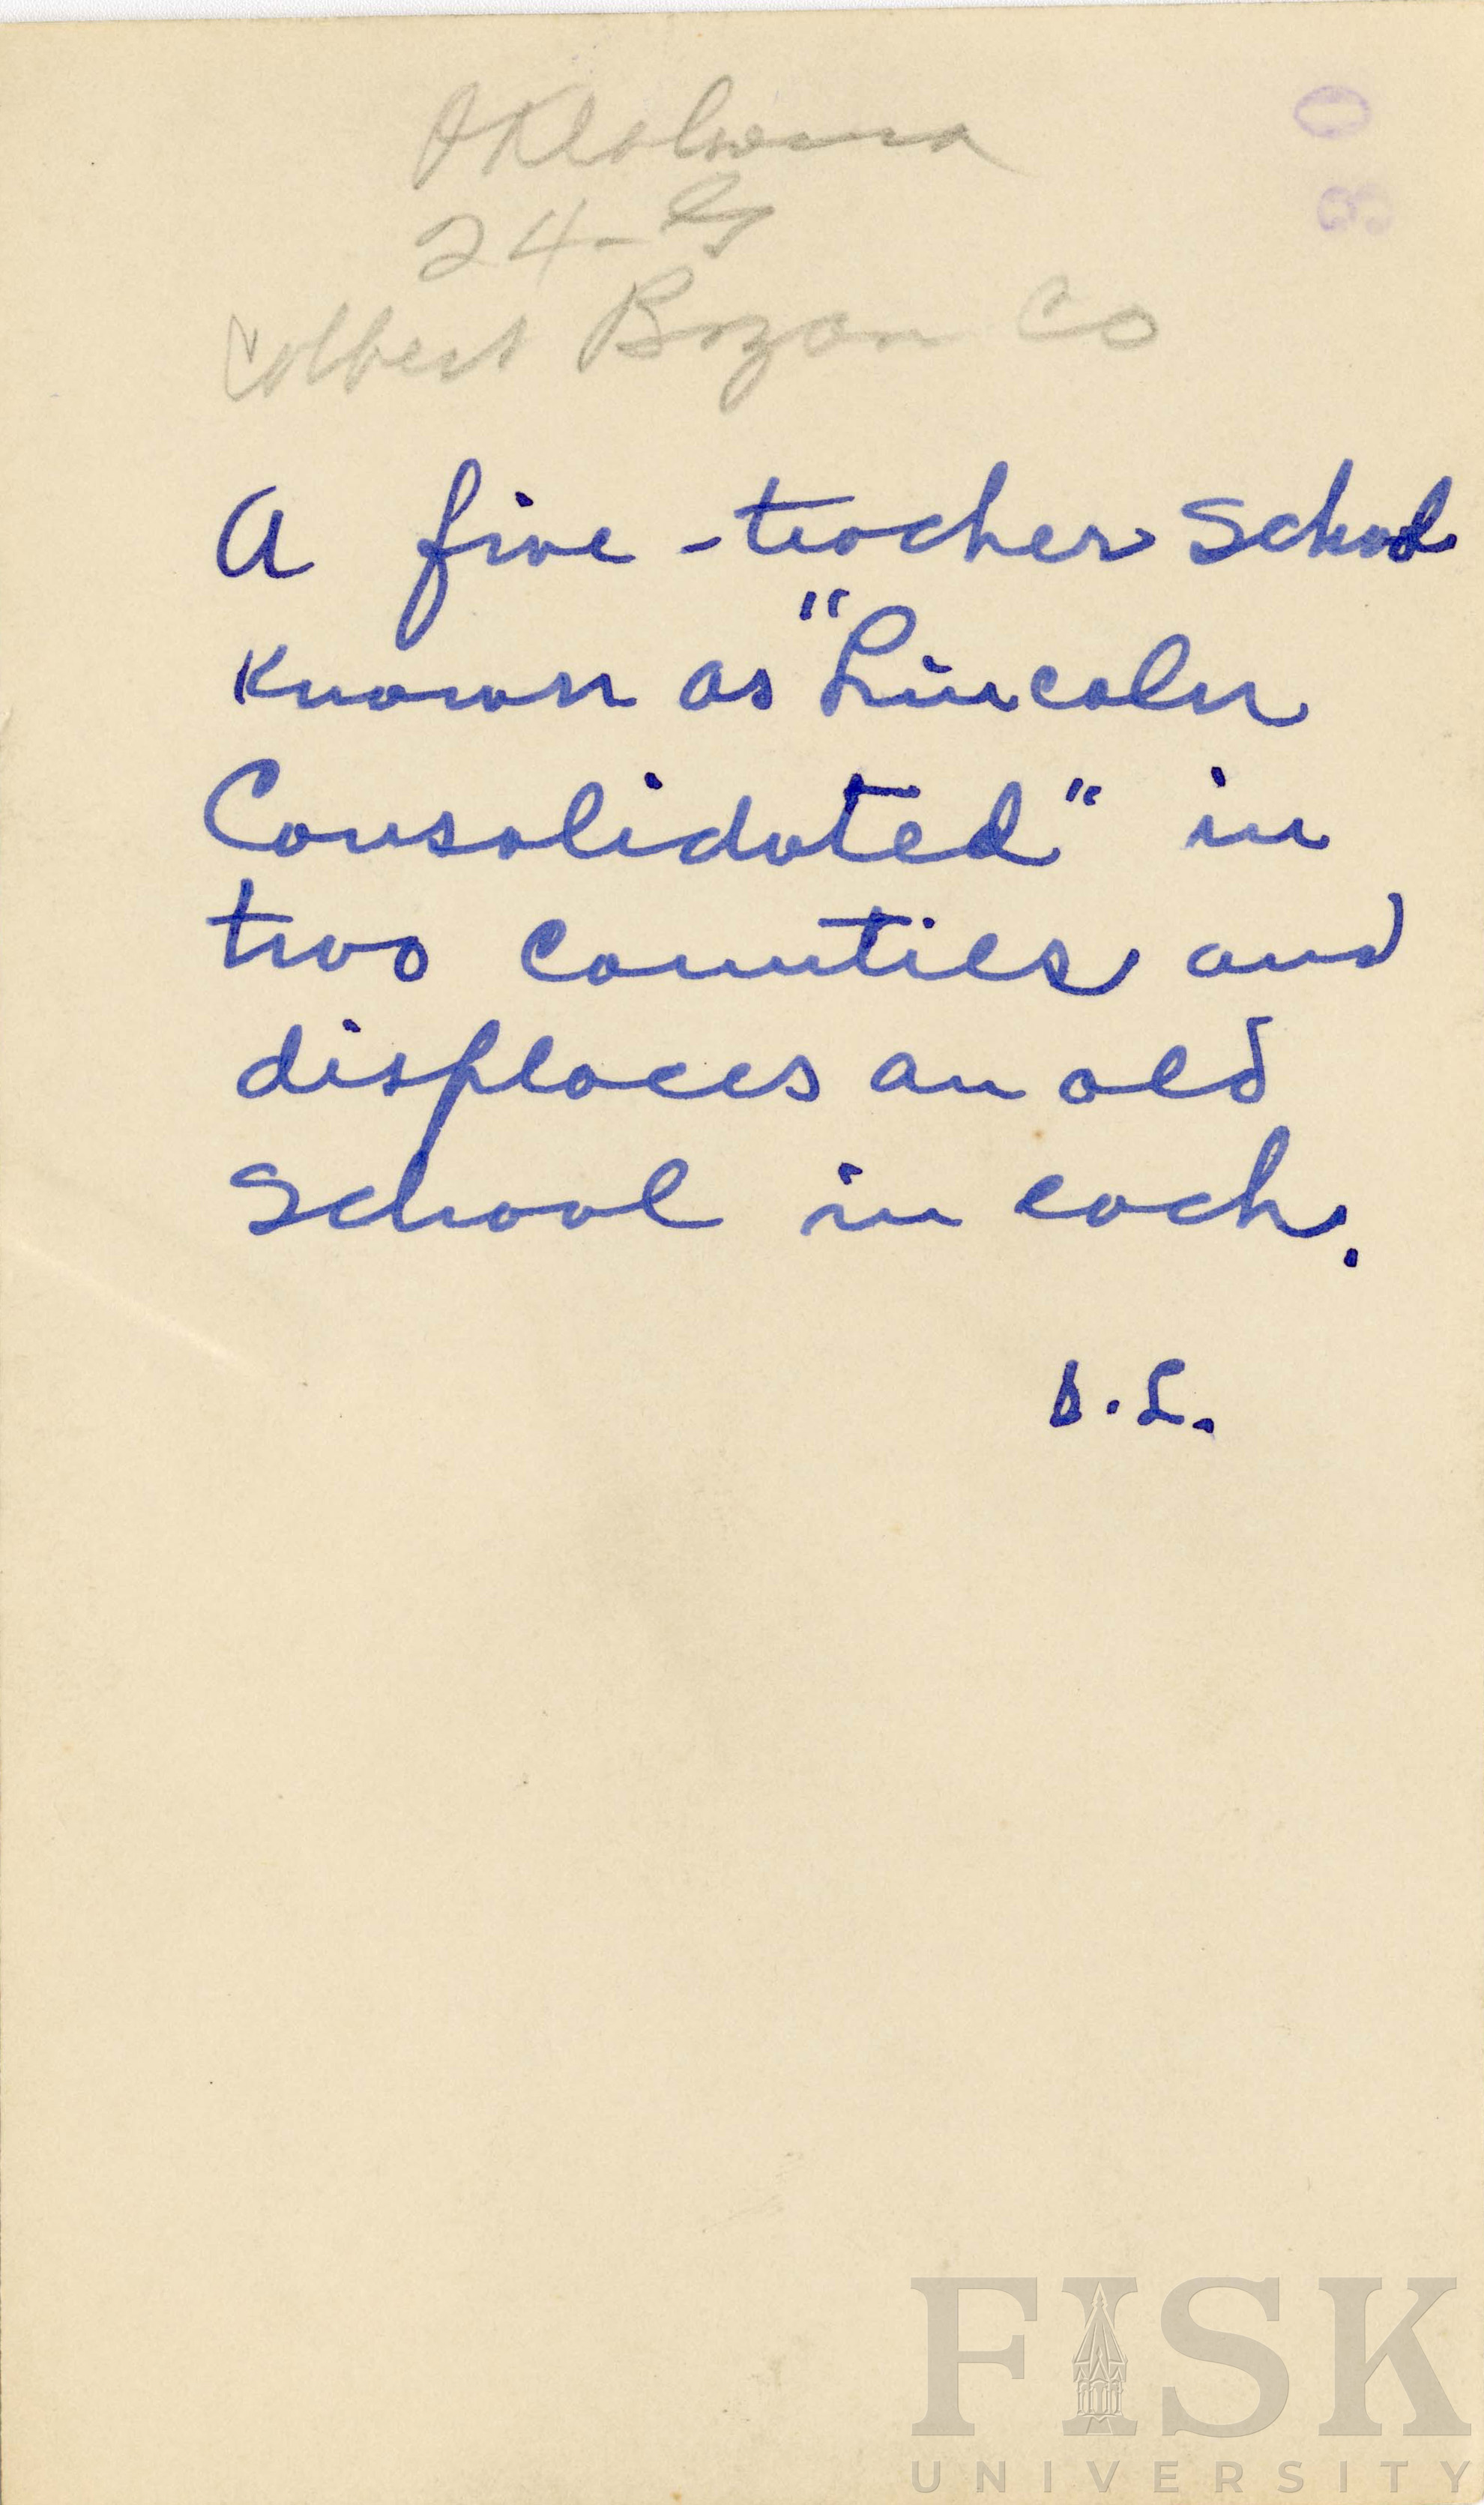 Oklahoma
24-
Colbert Bryan Co
A five-teacher School
Known as "Lincoln
Consolidated" in
two counties and
displaces an old
School in each.
D.L.
FISK
UNIVERSITY